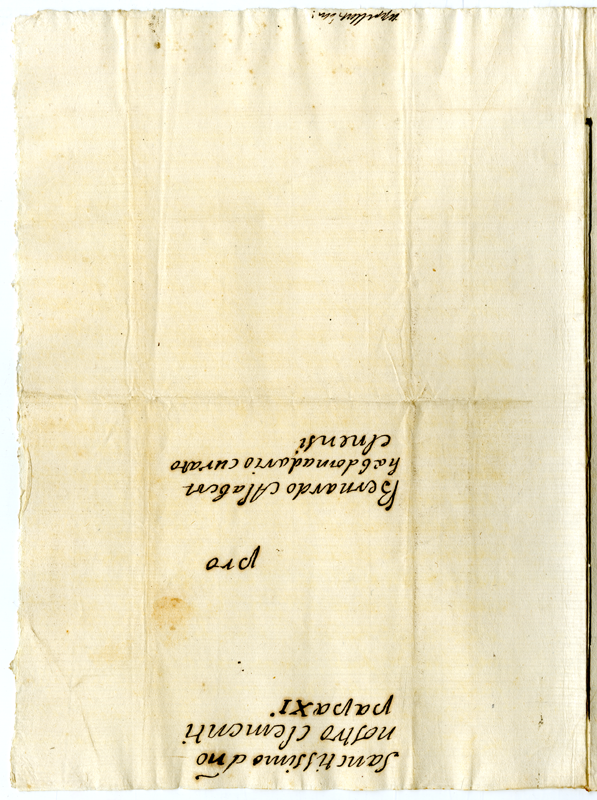 Sanctissimo d ño
nostro clementi
papa XI
pro
Bernardo Alabert
hæbdomadario curato
elnensi